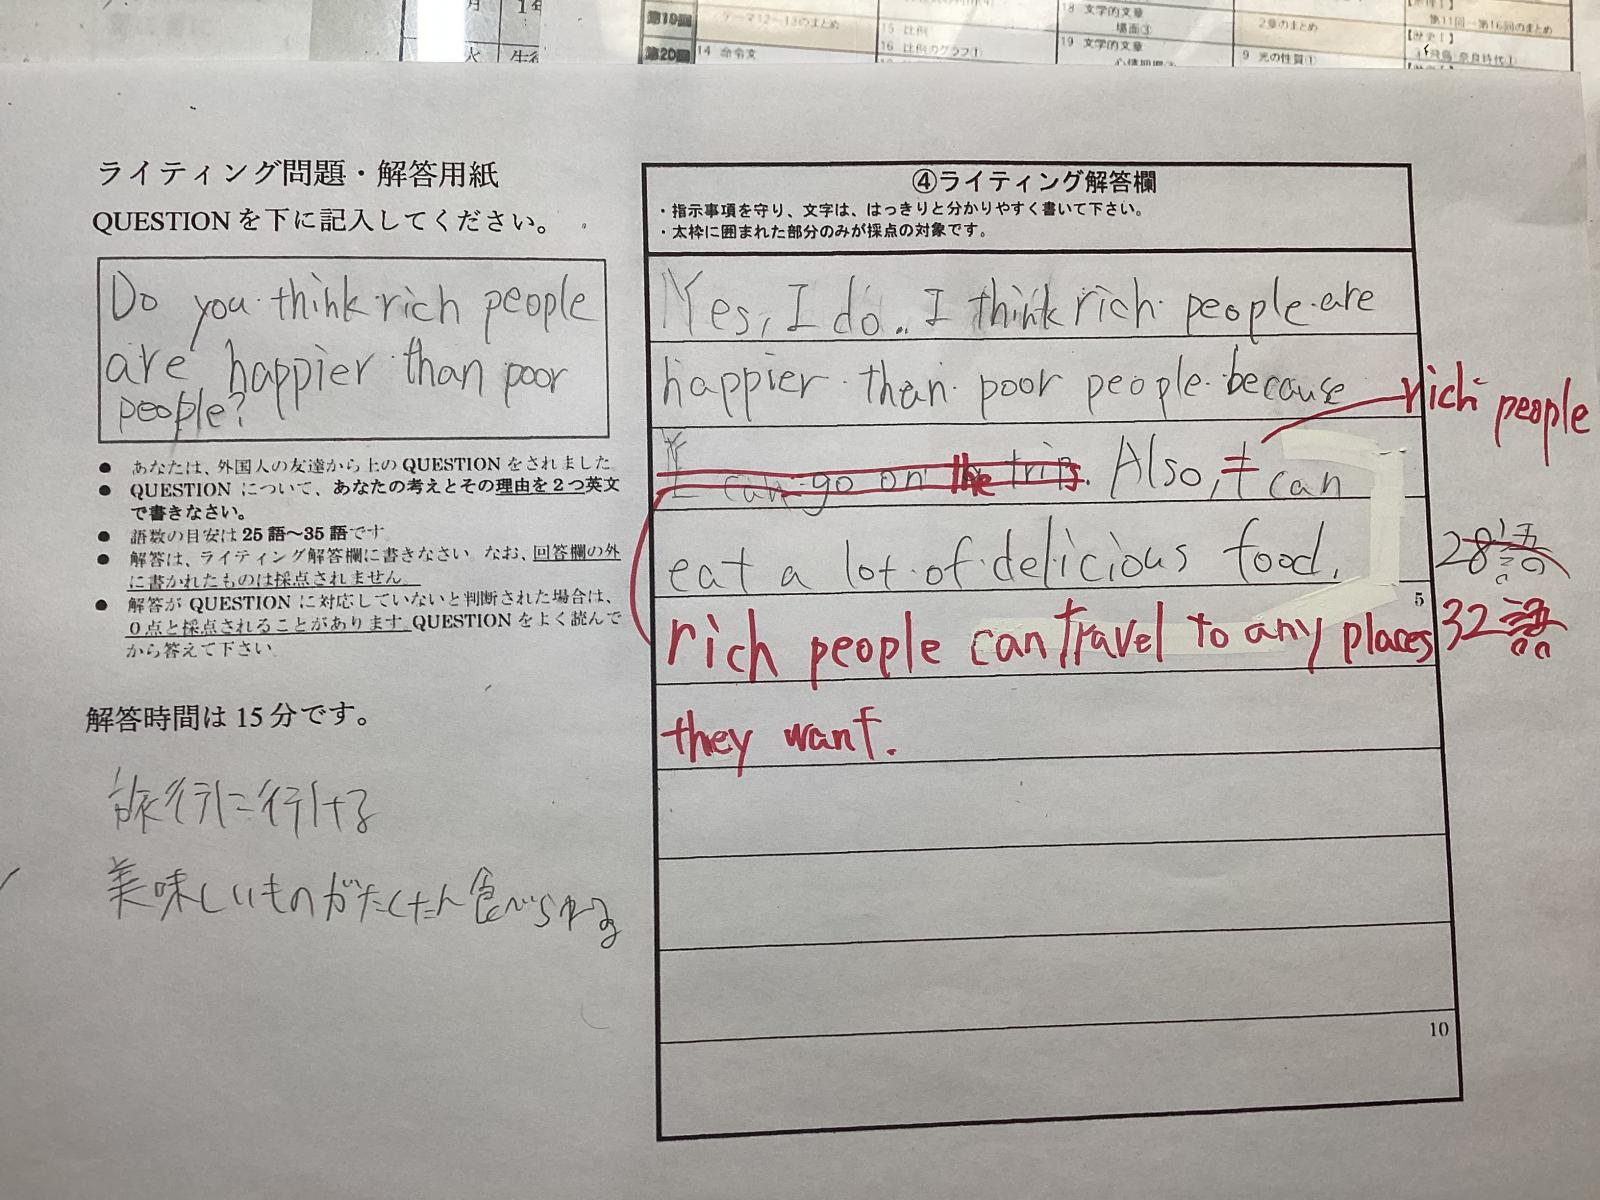 月 1年
火
第19回 テーマ12〜13のまとめ 15 比例 18 文学的文章 場面③ 2章のまとめ 第11回〜第16回のまとめ
第20回 14 命令文 16 比例のグラフ① 19 文学的文章 9 光の性質① 【歴史Ⅰ】
飛鳥・奈良時代①
ライティング問題・解答用紙
QUESTIONを下に記入してください。
Do you think rich people
are happier than poor
people?
● あなたは、外国人の友達から上の QUESTION をされました
● QUESTION について、あなたの考えとその理由を2つ英文
で書きなさい。
● 語数の目安は 25 語〜35 語です
● 解答は、ライティング解答欄に書きなさい。なお、回答欄の外
に書かれたものは採点されません。
● 解答が QUESTION に対応していないと判断された場合は、
0点と採点されることがあります。QUESTION をよく読んで
から答えて下さい。
解答時間は 15 分です。
旅行に行ける
美味しいものがたくたん食べられる
④ライティング解答欄
・指示事項を守り、文字は、はっきりと分かりやすく書いて下さい。
・太枠に囲まれた部分のみが採点の対象です。
Yes, I do.. I think rich people are
happier than poor people because
I can go on the trip. Also, I can
rich people
eat a lot of delicious food.
28語
5
rich people can travel to any places
32語
they want.
10